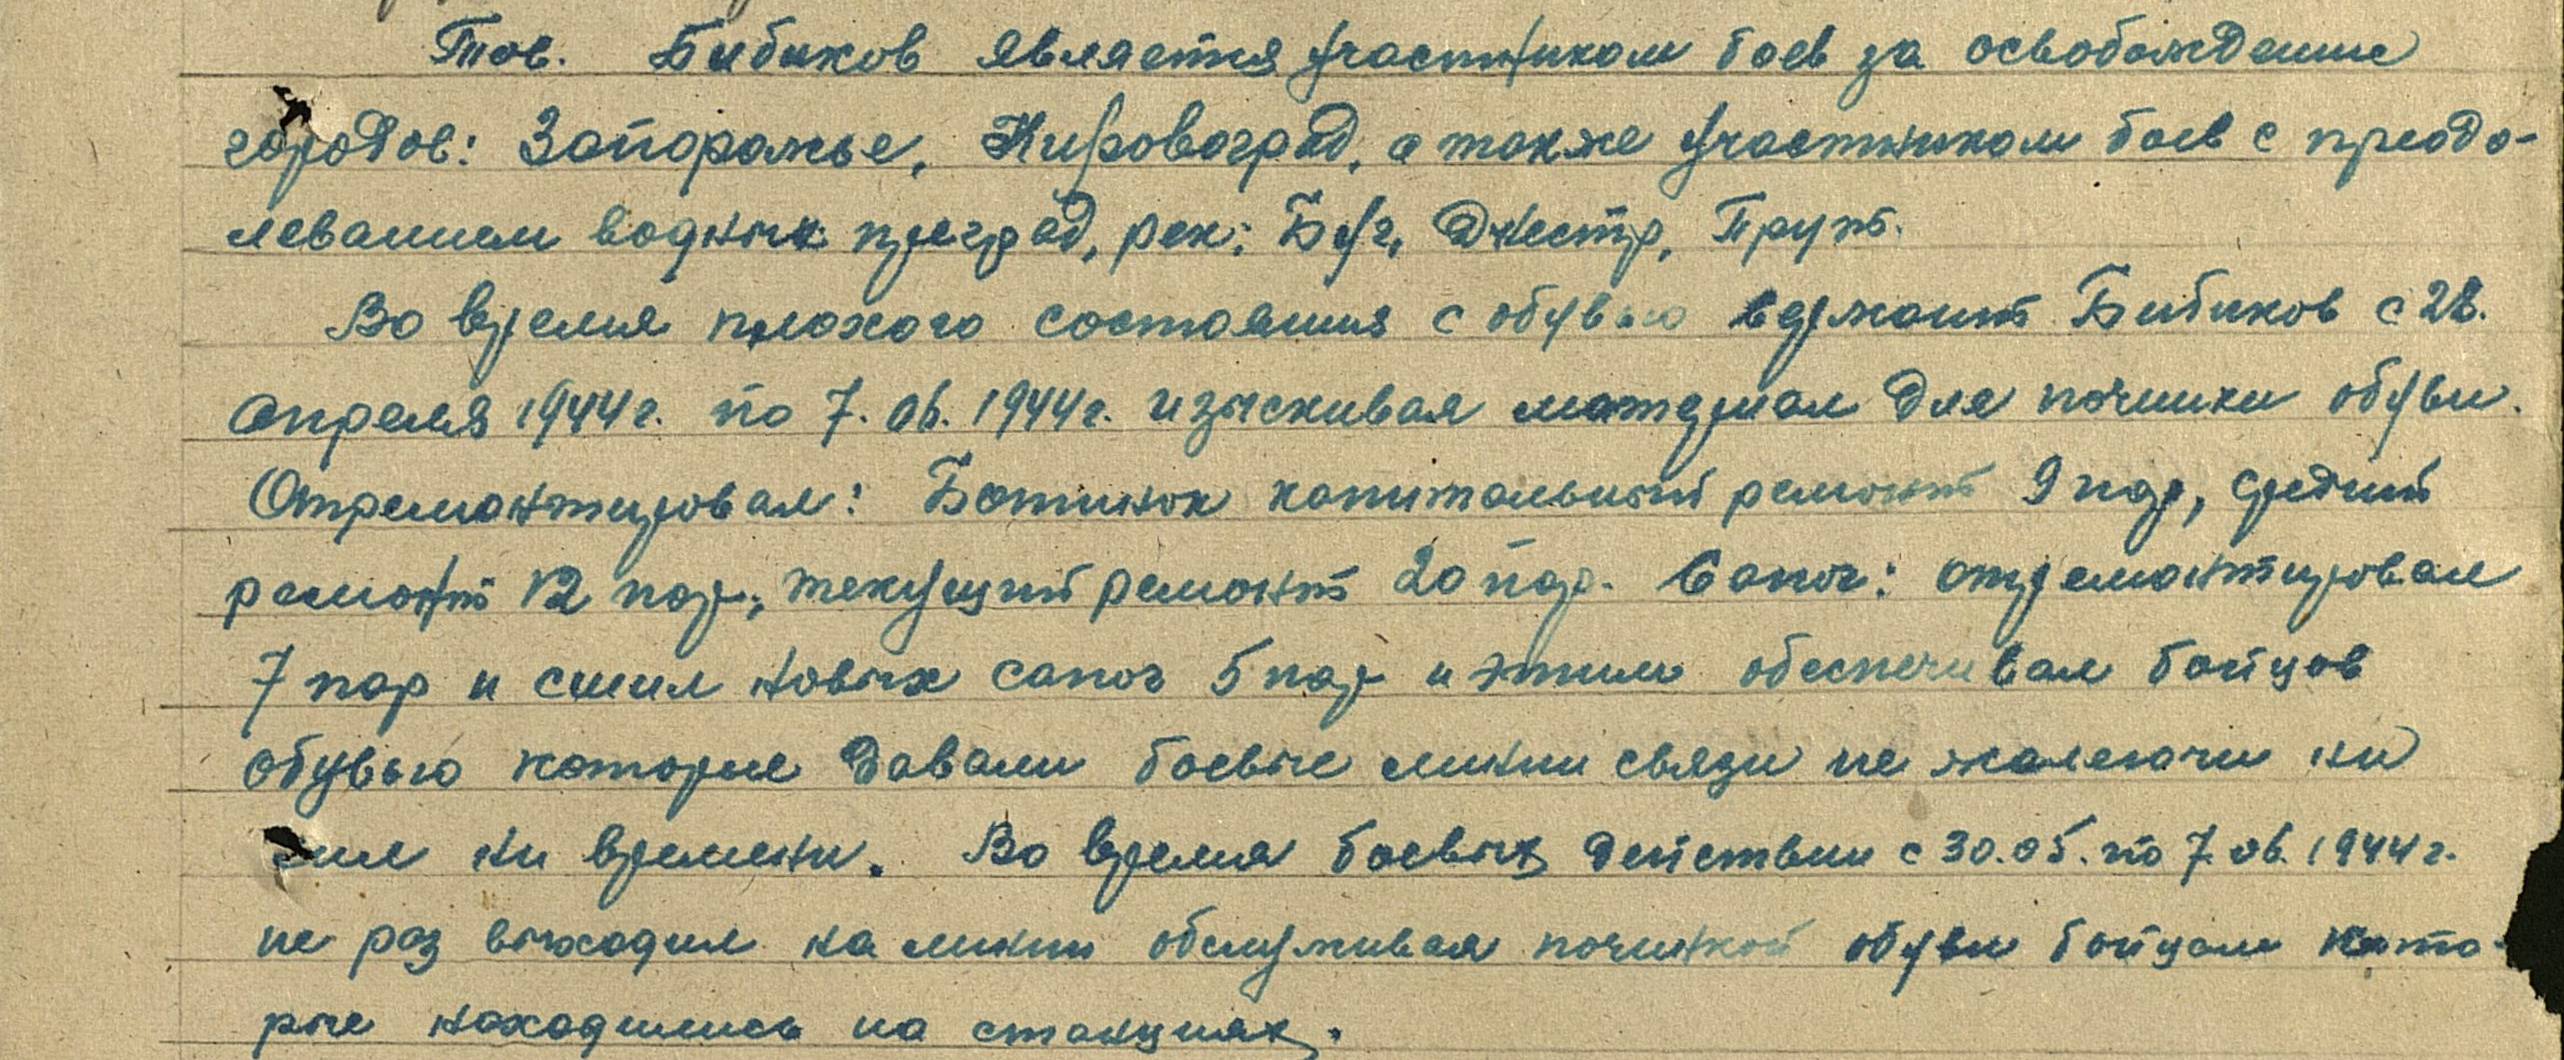 Тов. Бибиков является участником боев за освобождение
городов: Запорожье, Кировоград, а также участником боев с преодо-
леванием водных преград, рек: Буг, Днестр, Прут.
Во время плохого состояния с обувью Бибиков с 28.
Апреля 1944 г. по 7.06.1944 г. изыскивая материал для починки обуви.
Отремонтировал: Ботинок капитальный ремонт 9 пар, средний
ремонт 12 пар, текущий ремонт 20 пар. Сапог: отремонтировал
7 пар и сшил новых сапог 5 пар и этим обеспечивал бойцов
обувью которые давали боевые линии связи не жалеючи ни
сил ни времени. Во время боевых действии с 30.05. по 7.06.1944 г.
не раз выходил на линии обслуживая починкой обуви бойцам кото-
рые находились на станциях.